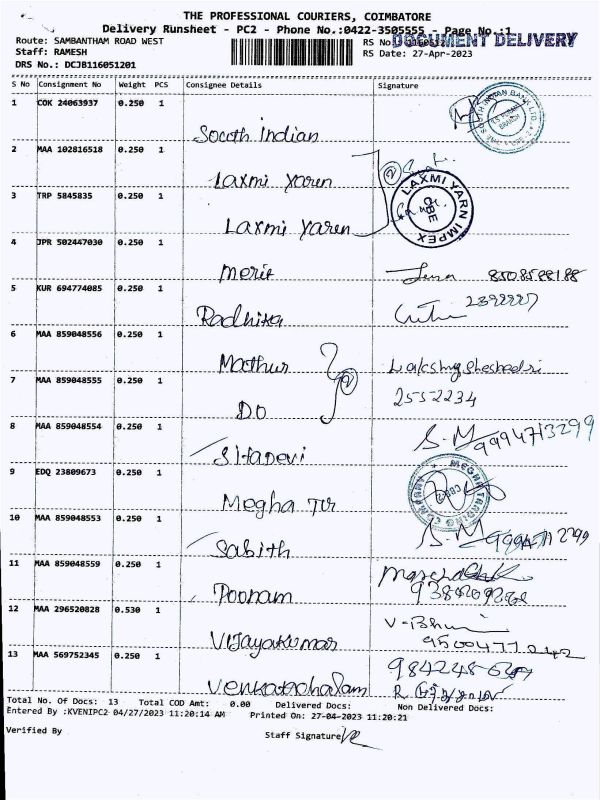 THE PROFESSIONAL COURIERS, COIMBATORE
Delivery Runsheet - PC2 - Phone No.:0422-3505555 - Page No.:1
Route: SAMBANTHAM ROAD WEST RS No
DOCUMENT DELIVERY
Staff: RAMESH RS Date: 27-Apr-2023
DRS No.: DCJB116051201
S No Consignment No Weight PCS Consignee Details Signature
1 COK 24063937 0.250 1
South Indian
SOUTH INDIAN BANK LTD.
2 MAA 102816518 0.250 1
Laxmi Yaren
3 TRP 5845835 0.250 1
Laxmi Yaren
2
LAXMI YARN IMPEX
CBE
4 JPR 502447030 0.250 1
Merit 8508588188
5 KUR 694774085 0.250 1
Radhika
6 MAA 859048556 0.250 1
Mathur Lakshmysheshadri
7 MAA 859048555 0.250 1
2552234
DO
2
8 MAA 859048554 0.250 1
S.M 9994713299
Sitadevi
9 EDQ 23809673 0.250 1
Megha Tr
MEGHA TRADING COMPANY
10 MAA 859048553 0.250 1
S.M
Sabith
11 MAA 859048559 0.250 1
Poonam
12 MAA 296520828 0.530 1
Vijayakumar
13 MAA 569752345 0.250 1
Venkatachalam
Total No. Of Docs: 13 Total COD Amt: 0.00 Delivered Docs: Non Delivered Docs:
Entered By :KVENIPC2 04/27/2023 11:20:14 AM Printed On: 27-04-2023 11:20:21
Verified By Staff Signature